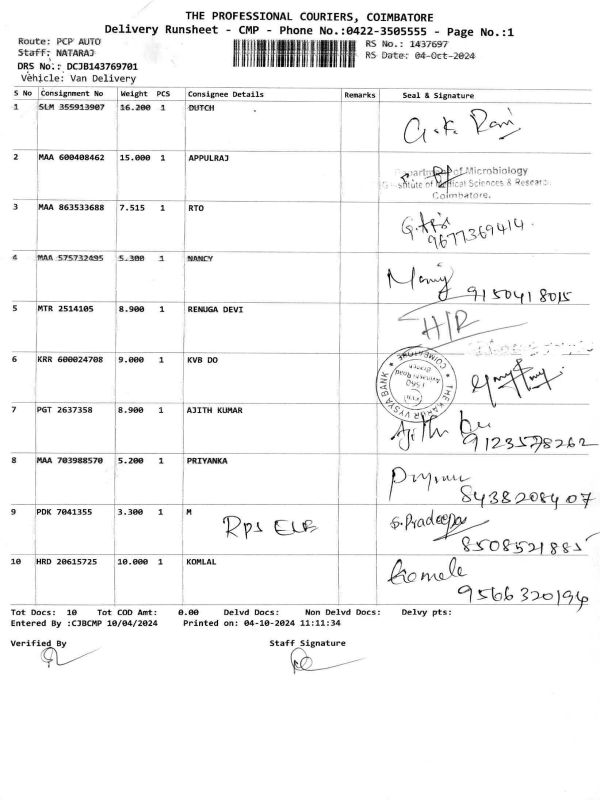 THE PROFESSIONAL COURIERS, COIMBATORE
Delivery Runsheet - CMP - Phone No.:0422-3505555 - Page No.:1
Route: PCP AUTO
RS No.: 1437697
Staff: NATARAJ
RS Date: 04-Oct-2024
DRS No.: DCJB143769701
Vehicle: Van Delivery
S No Consignment No Weight PCS Consignee Details Remarks Seal & Signature
1 SLM 355913907 16.200 1 DUTCH
G.K. Rani
2 MAA 600408462 15.000 1 APPULRAJ
of Microbiology
Sciences & Research
Coimbatore.
3 MAA 863533688 7.515 1 RTO
9677369414
4 MAA 575732495 5.300 1 NANCY
9150418015
5 MTR 2514105 8.900 1 RENUGA DEVI
6 KRR 600024708 9.000 1 KVB DO
THE KARUR VYSYA BANK
COIMBATORE
Avinashi Road
Branch
7 PGT 2637358 8.900 1 AJITH KUMAR
Ajith
9123578262
8 MAA 703988570 5.200 1 PRIYANKA
8438208407
9 PDK 7041355 3.300 1 M
S. Pradeepa
8508521885
10 HRD 20615725 10.000 1 KOMLAL
9566320194
Tot Docs: 10 Tot COD Amt: 0.00 Delvd Docs: Non Delvd Docs: Delvy pts:
Entered By :CJBCMP 10/04/2024 Printed on: 04-10-2024 11:11:34
Verified By Staff Signature